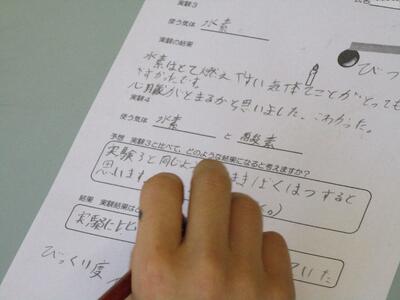 実験3
使う気体 水素
実験の結果
水素はとても燃えやすい気体でことがとっても
すかったです。
心臓がとまるかと思いました。こわかった。
実験4
使う気体 水素 と 酸素
予想 実験3と比べて、どのような結果になると考えますか?
実験3と同じよう ばくはつすると
思います
結果 実験結果は
実験に いた
びっくり度
びっ